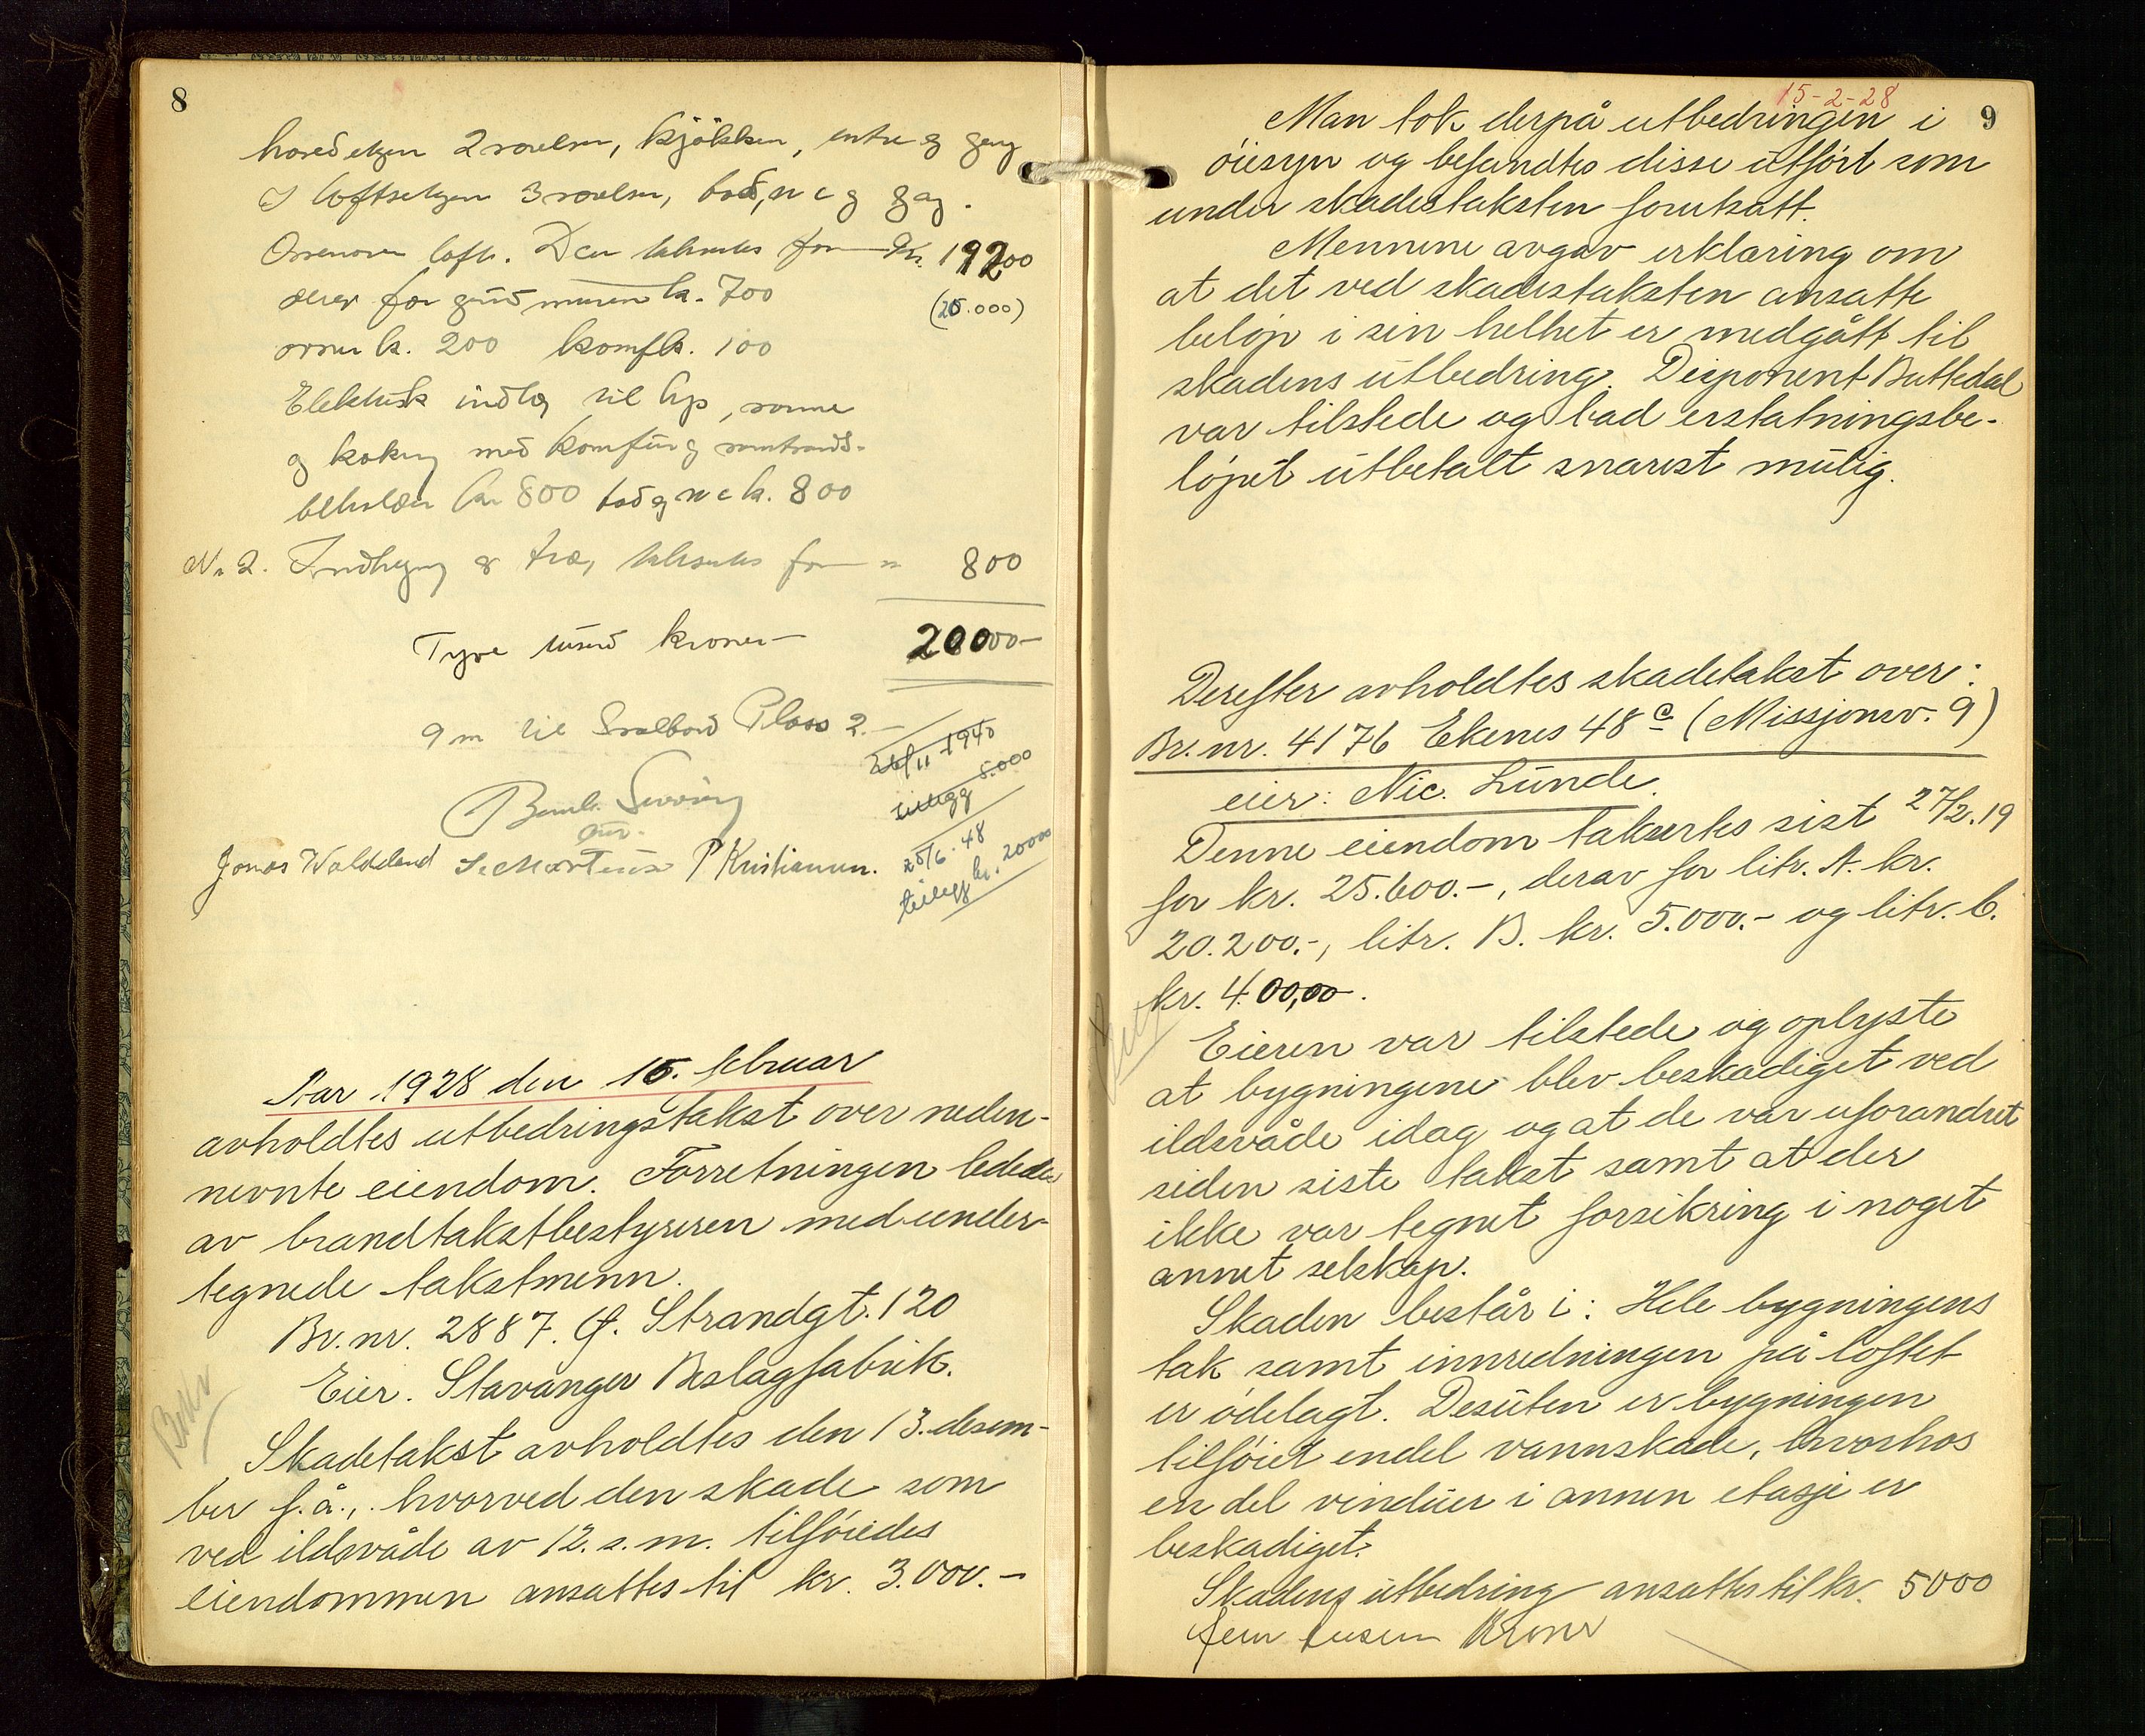 8
hovedetgen 2 værelser, kjökken, entre og gang
I loftsetgen 3 værelser, bad, wc og gang.
Ovenover loft. Den takseres for Kr. 19200
derav for grundmuren kr. 700
(25.000)
ovner kr. 200 komf kr. 100
Elektrisk indlæg til lys, varme
og koking med komfür og varmtvands-
beholder kr 800 bad og wc kr. 800
Nr 2. Indhegning af træ, takseres for " 800
Tyve tusend kroner — 20000-
9 m til Svalbard Plass 2.-
26/11-1940
tillegg 5.000
25/6-48
tillegg kr. 20000
Jonas Waldeland S. Martens P Kristiansen.
Aar 1928 den 15. februar
avholdtes utbedringstakst over neden-
nevnte eiendom. Forretningen lededes
av brandtakstbestyreren med under-
tegnede takstmenn.
Br. nr. 2887. Ø. Strandgt. 120
Eier. Stavanger Beslagfabrik.
Bekr
Skadetakst avholdtes den 13. desem-
ber f. å., hvorved den skade som
ved ildsvåde av 12. s. m. tilföiedes
eiendommen ansattes til kr. 3.000.-
15-2-28
9
Man tok derpå utbedringen i
öiesyn og befandtes disse utfört som
under skadestaksten forutsatt.
Mennene avgav erklæring om
at det ved skadestaksten ansatte
belöp i sin helhet er medgått til
skadens utbedring. Disponent Buttedal
var tilstede og bad erstatningsbe-
löpet utbetalt snarest mulig.
Derefter avholdtes skadetakst over:
Br. nr. 4176 Ekenes 48 c (Missjonsv. 9)
eier: Nic. Lunde.
Denne eiendom takseertes sist 27/2.19
for kr. 25.600.-, derav for litr. A. kr.
20.200.-, litr. B. kr. 5.000.- og litr. C.
kr. 400,00.
Eieren var tilstede og oplyste
at bygningene blev beskadiget ved
ildsvåde idag og at de var uforandret
siden siste takst samt at der
ikke var tegnet forsikring i noget
annet selskap.
Skaden består i: Hele bygningens
tak samt innredningen på loftet
er ödelagt. Desuten er bygningen
tilföiet endel vannskade, hvorhos
en del vinduer i annen etasje er
beskadiget.
Skadens utbedring ansattes til kr. 5000
fem tusen Kroner